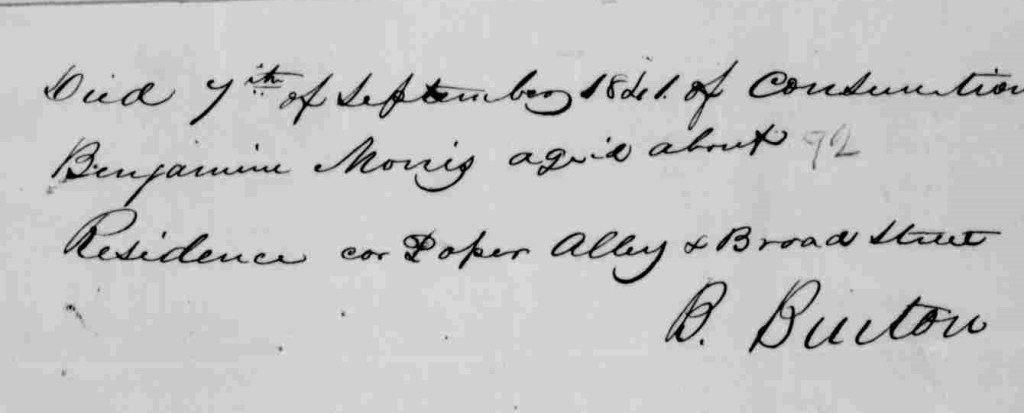 Died 7th of September 1841. of Consumtion
Benjamine Morris aged about 92
Residence cor Poper Alley & Broad Street
B. Burton